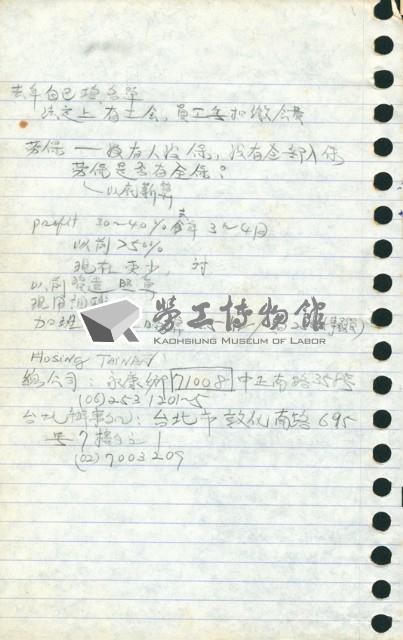 去年自己填名單
法定上有工會，員工無扣繳會費
勞保 — 沒有人沒保，沒有全部入保
勞保是否有全保？
以底薪算
profit 30~40% 去年 3~4月
以前 >50%
現在 更少
以前
現用
加班
勞工博物館
KAOHSIUNG MUSEUM OF LABOR
HOSING TAINAN
總公司：永康鄉 71008 中正南路35號
(06) 253 1201~5
台北辦事處：台北市敦化南路695
號7樓之1
(02) 7003209